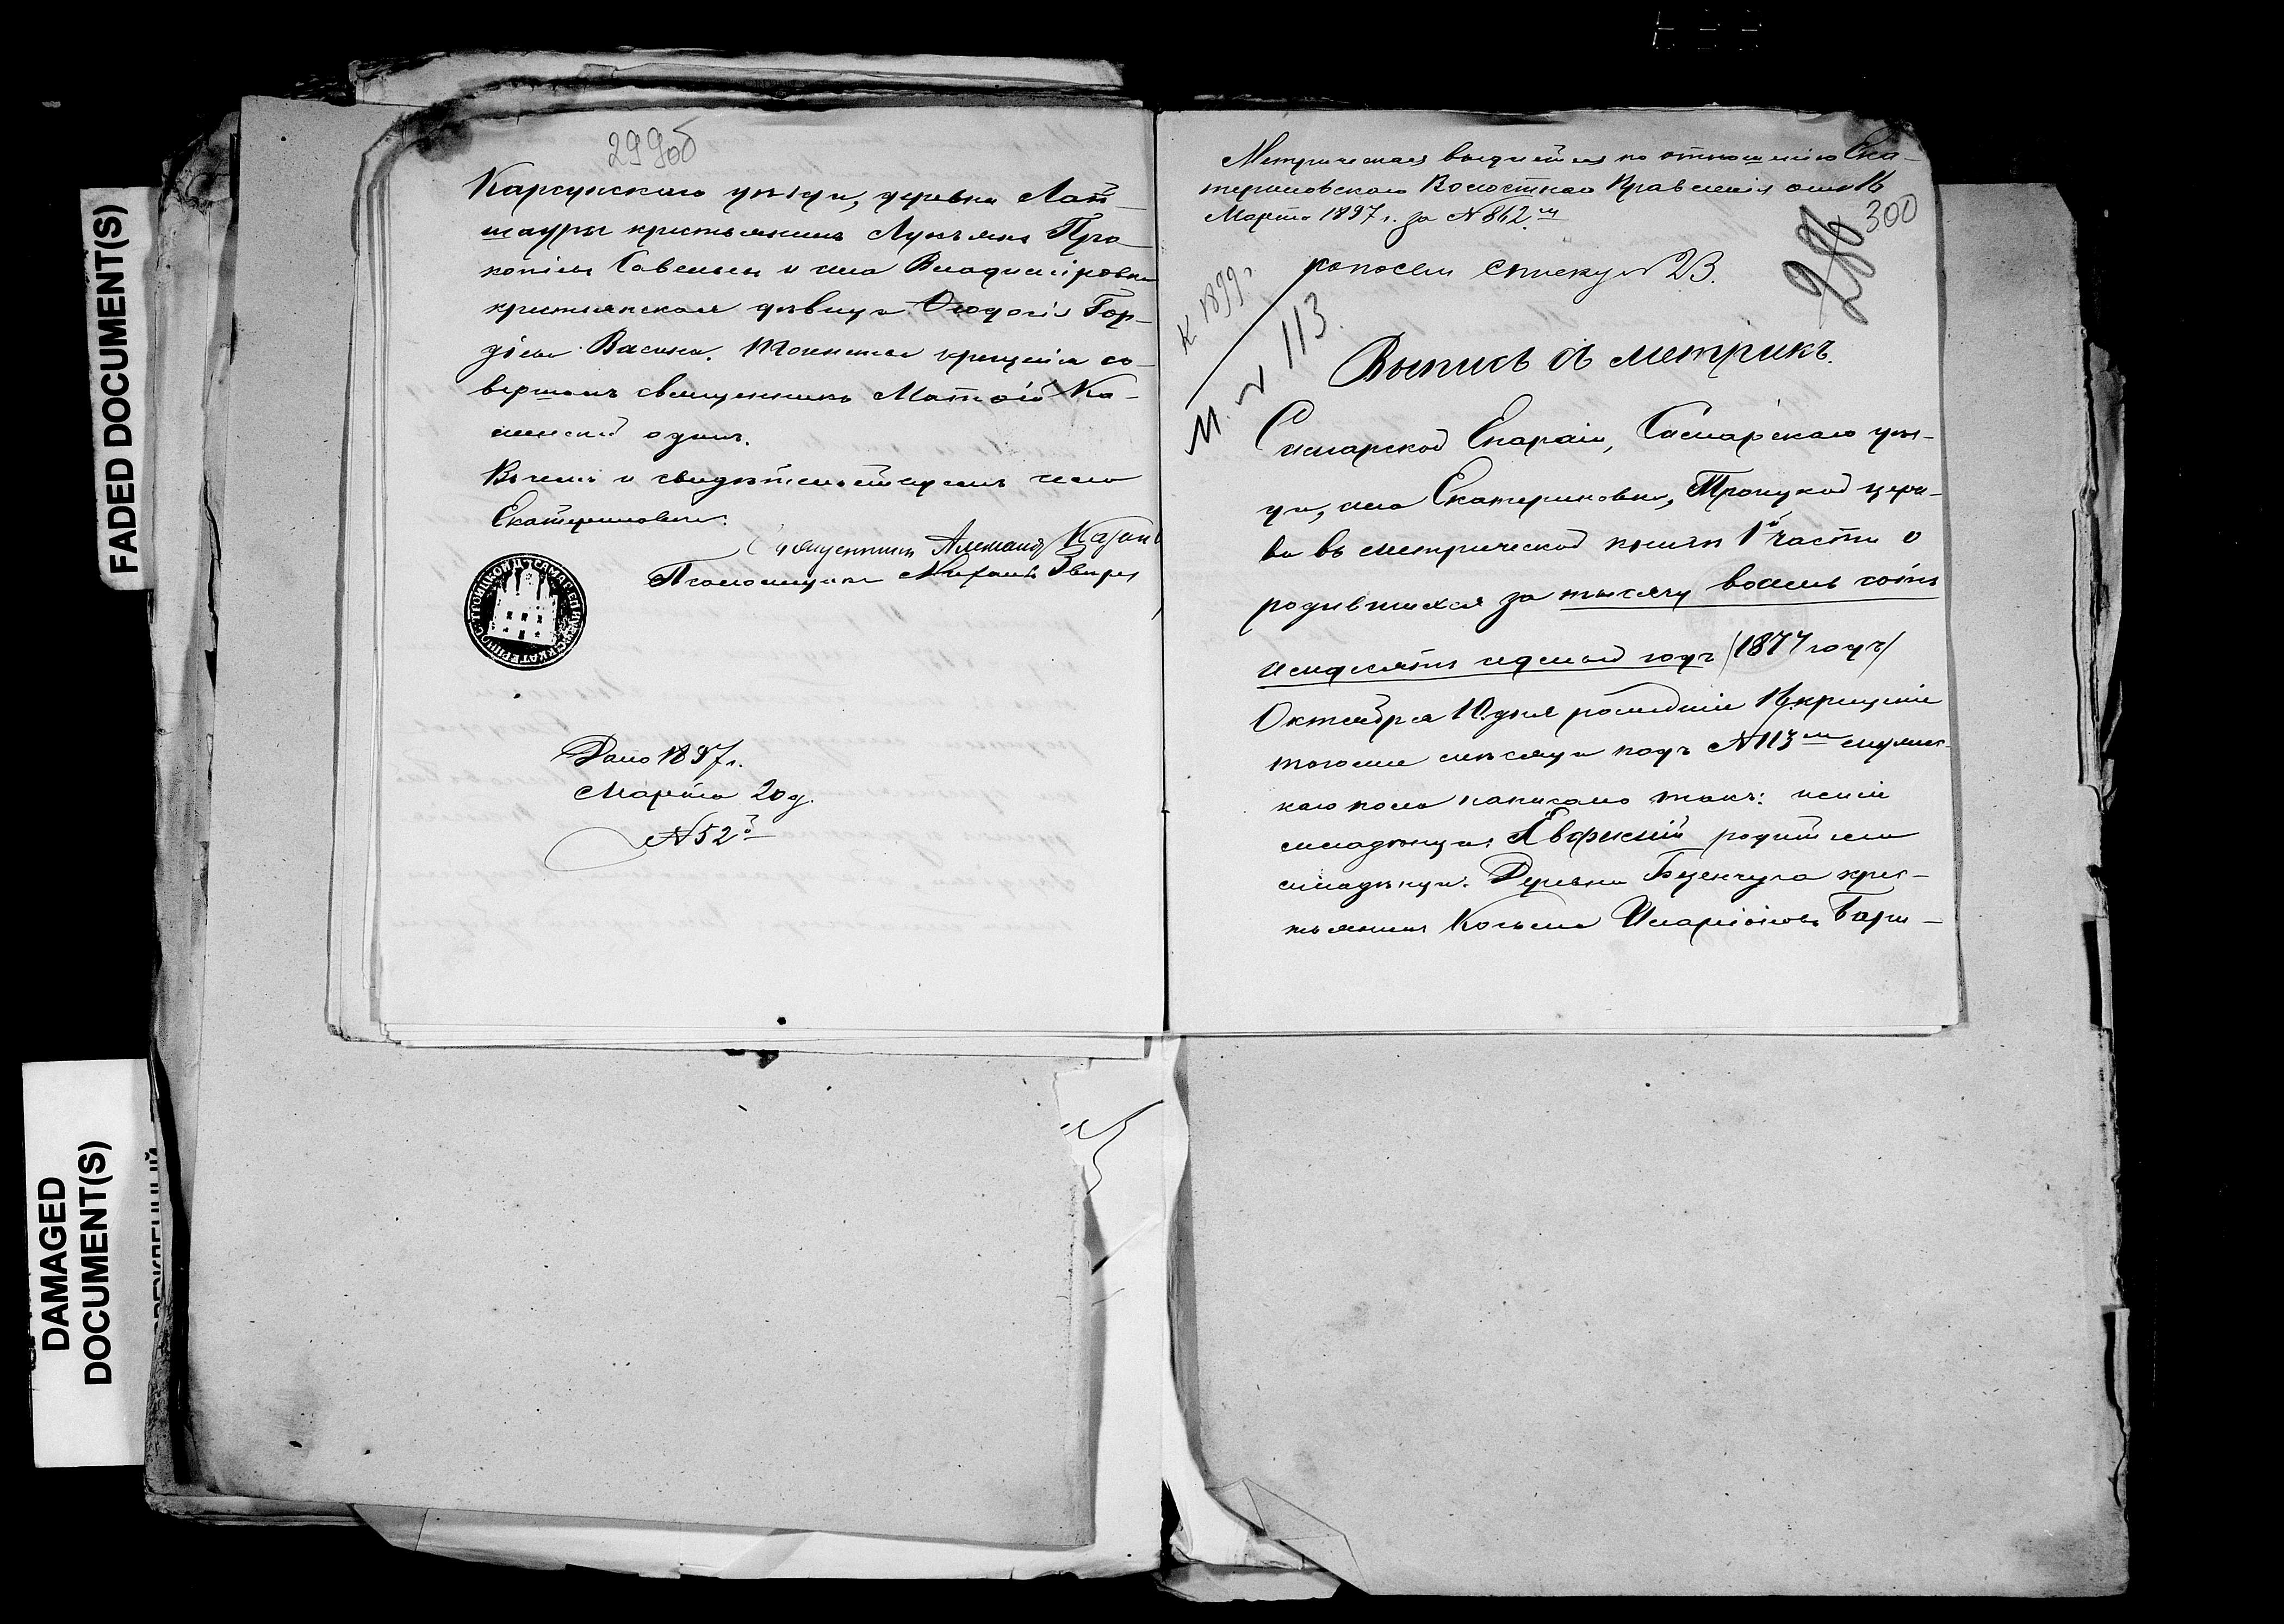 FADED DOCUMENT(S)
DAMAGED
DOCUMENT(S)
299об
Карсунскаго уѣзда, деревни Лат-
шауры крестьянинъ Лукьянъ Про-
копіевъ Савельевъ и села Владиміровки
крестьянская дѣвица Ѳеодосія Гор-
дѣева Васина. Таинство крещенія со-
вершалъ священникъ Матѳій Ка-
менскій одинъ.
Въ чемъ и свидѣтельствуемъ села
Екатериновки:
Священникъ Александръ
Псаломщикъ Михаилъ
Дано 1897 г.
Марта 20 д.
№ 52й
Метрическая выдается по отношенію Ека-
териновскаго Волостнаго Правленія отъ 16
Марта 1897 г. за № 862м
300
286
к 1899 г
по посем. списку № 23.
М. № 113
Выпись изъ метрикъ.
Самарской Епархіи, Самарскаго уѣз-
да, села Екатериновки, Троицкой церк-
ви въ метрической книгѣ 1й части о
родившихся за тысячу восемь сотъ
семдесятъ седьмой годъ /1877 годъ/
Октября 10. дня рожденіе 16. крещеніе
тогоже мѣсяца подъ № 113м мужес-
каго пола написано такъ: имя
младенца: Евфимій родители
младенца: Деревни Безенчука крес-
тьянинъ Косьма Иларіоновъ Бары-